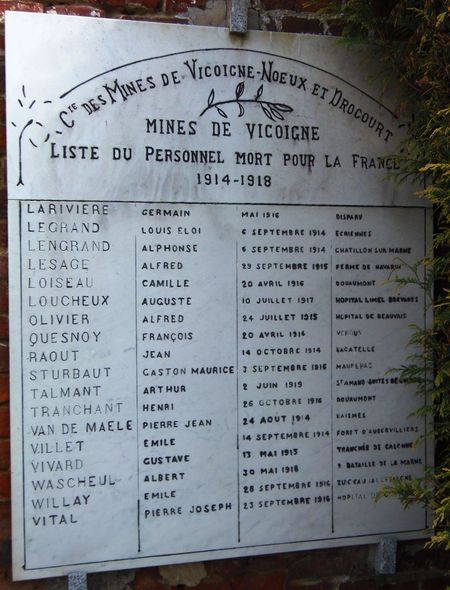 Cie DES MINES DE VICOIGNE-NOEUX ET DROCOURT
MINES DE VICOIGNE
LISTE DU PERSONNEL MORT POUR LA FRANCE
1914-1918
LARIVIERE GERMAIN MAI 1916 DISPARU
LEGRAND LOUIS ELOI 6 SEPTEMBRE 1914 ECRIENNES
LENGRAND ALPHONSE 6 SEPTEMBRE 1914 CHATILLON SUR MARNE
LESAGE ALFRED 29 SEPTEMBRE 1915 FERME DE NAVARIN
LOISEAU CAMILLE 20 AVRIL 1916 DOUAUMONT
LOUCHEUX AUGUSTE 10 JUILLET 1917 HOPITAL LIMEL BREVANES
OLIVIER ALFRED 24 JUILLET 1915 HOPITAL DE BEAUVAIS
QUESNOY FRANÇOIS 20 AVRIL 1916 VERDUN
RAOUT JEAN 14 OCTOBRE 1914 BAGATELLE
STURBAUT GASTON MAURICE 3 SEPTEMBRE 1916 MAUREPAS
TALMANT ARTHUR 2 JUIN 1919 ST AMAND SUITES DE
TRANCHANT HENRI 26 OCTOBRE 1916 DOUAUMONT
VAN DE MAELE PIERRE JEAN 24 AOUT 1914 RAISMES
VILLET EMILE 14 SEPTEMBRE 1914 FORET D'AUBERVILLIERS
VIVARD GUSTAVE 13 MAI 1915 TRANCHÉE DE CALONNE
WASCHEUL ALBERT 30 MAI 1918 BATAILLE DE LA MARNE
WILLAY EMILE 28 SEPTEMBRE 1916
VITAL PIERRE JOSEPH 23 SEPTEMBRE 1916 HOPITAL